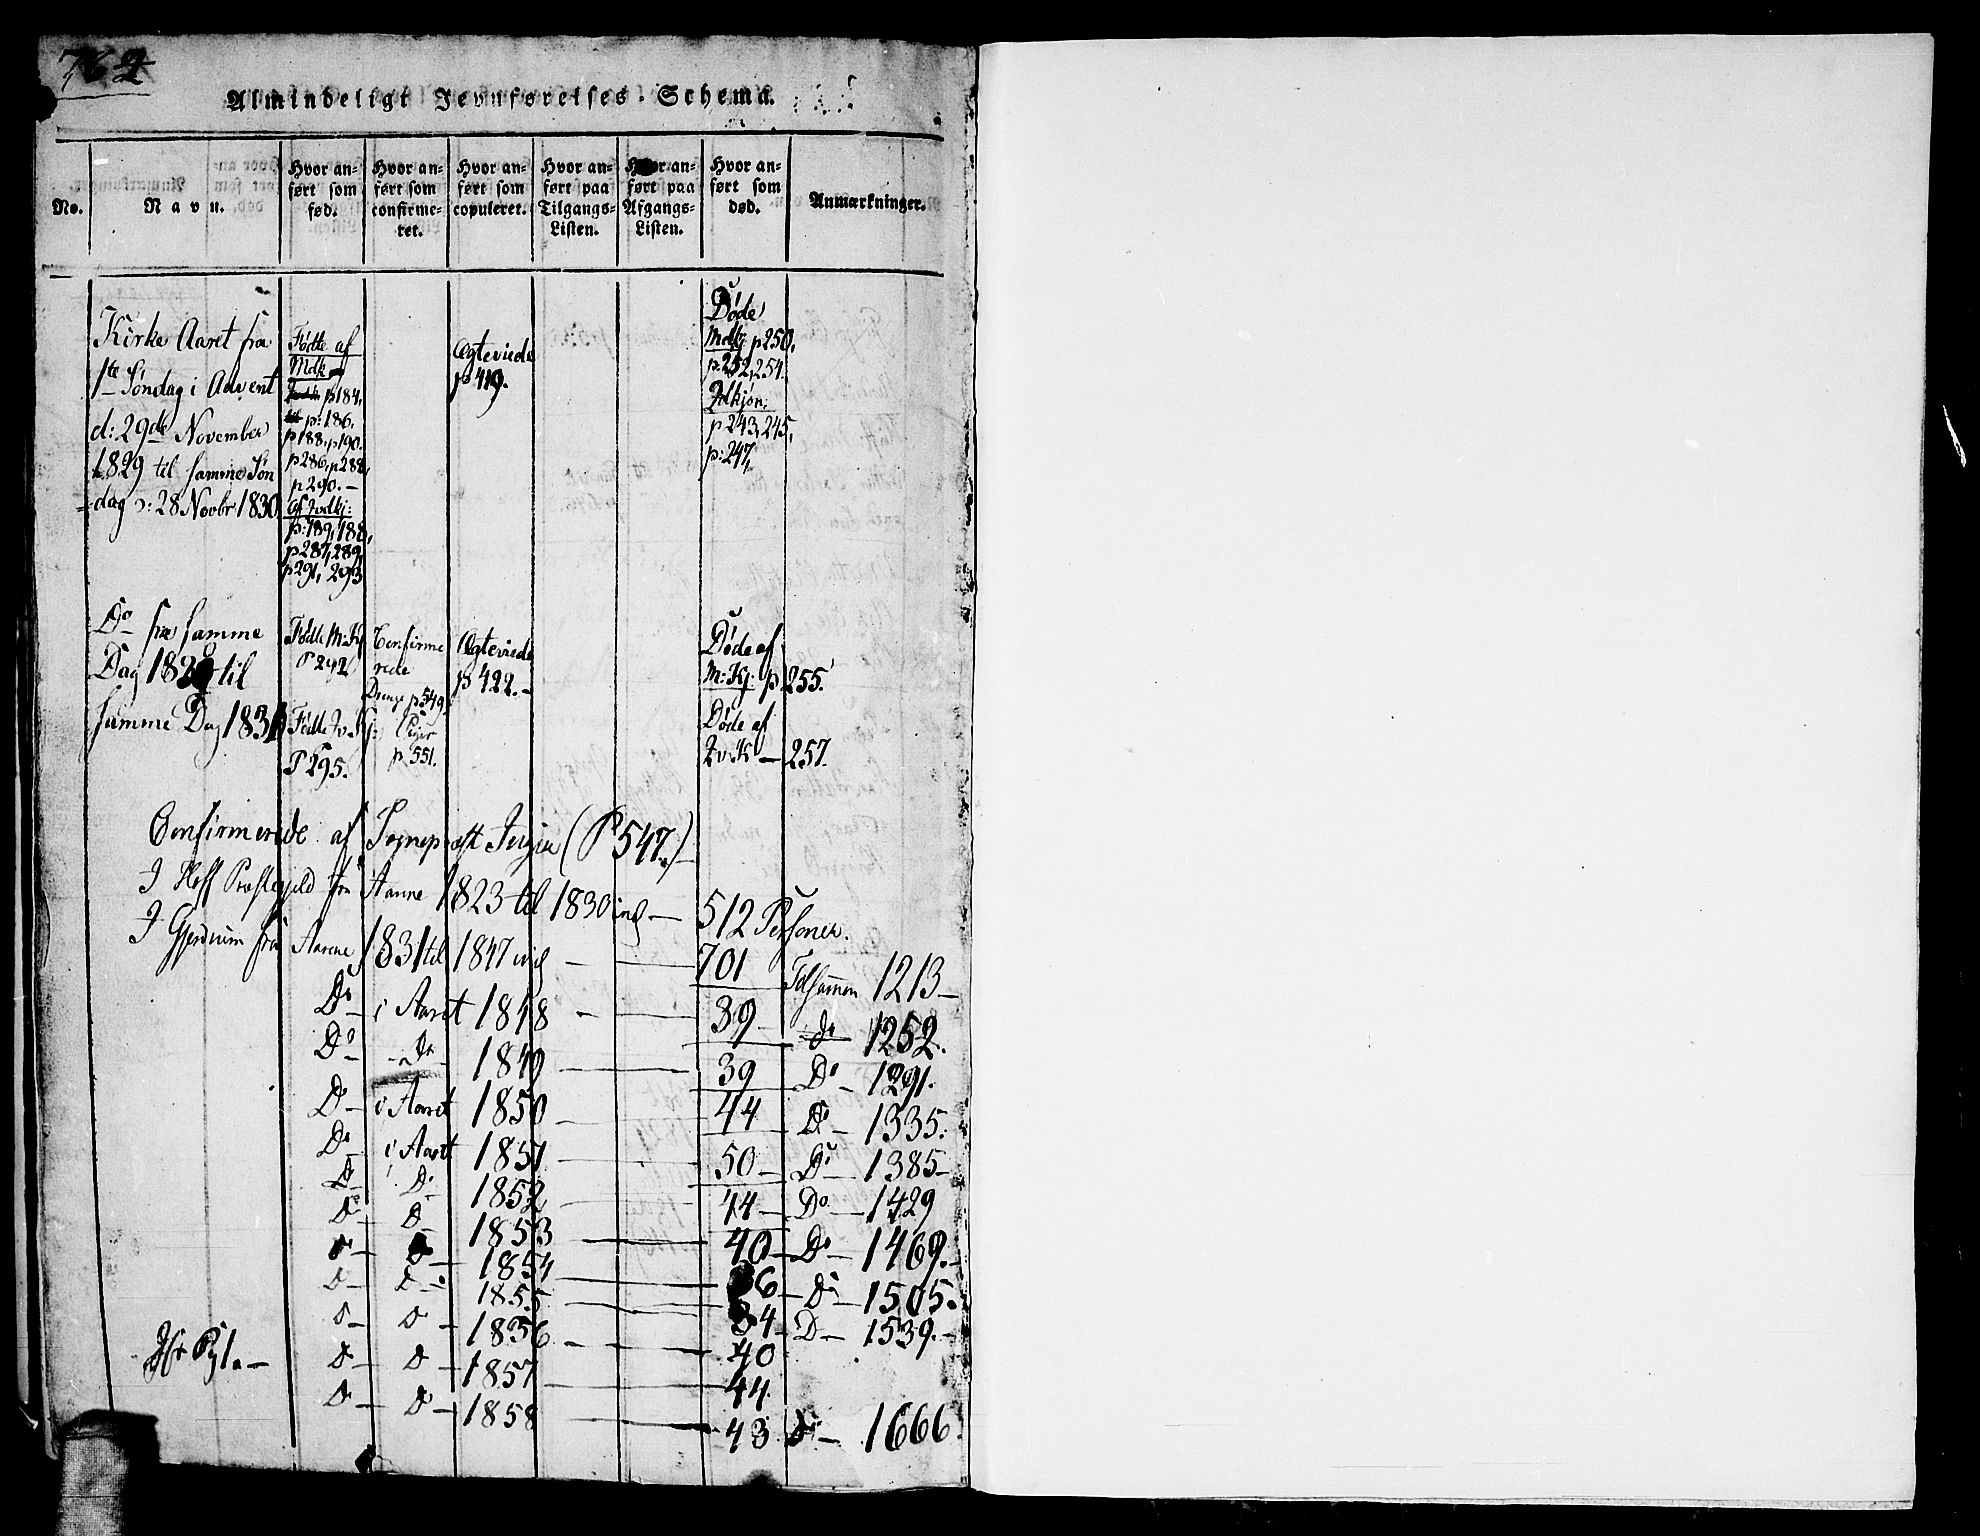 762
Almindeligt Jevnførelses-Schema.
No.
Navn.
Hvor anført som fød.
Hvor anført som confirmeret.
Hvor anført som copuleret.
Hvor anført paa Tilgangs-Listen.
Hvor anført paa Afgangs-Listen.
Hvor anført som død.
Anmærkninger.
Kirke Aaret fra
1te Søndag i Advent
d: 29de November
1829 til samme Søn
=dag d: 28 Novbr 1830
Fødte af
Mdk
p 184,
p: 186,
p 188, p 190.
p 286, p 288,
p 290.-
af Qvdkj:
p: 189, 188,
p 287, 289,
p 291, 293
Ægteviede
p 419.
Døde
Mdkj p 250,
p. 252, 254.
Qdkjøn:
p 243, 245,
p: 247,
Do fra samme
Dag 1830 til
samme Dag 1831
Fødte M: Kj
P 292
Fødte Qv. Kj:
P 295.
Confirme
rede
Drenge p 549.
Piger
p. 551.
Ægteviede
p 422.-
Døde af
M: Kj: p 255.
Døde af
Qv: K - 257.
Confirmerede af Sognepræst (P 547.)-
I Hoff Præstegjeld fra Aarene 1823 til 1830 incl - 512 Personer.
I Gjerdrum fra Aarene 1831 til 1847 incl - 701 Tilsammen 1213-
Do i Aaret 1848 - 39 do 1252.
Do - do 1849 - 39 Do - 1291.
Do - i Aaret 1850 - 44 Do 1335.
Do i Aaret 1851 - 50 - Do 1385-
Do Do 1852 - 44 - Do - 1429
Do Do 1853 - 40 - Do - 1469.-
Do - Do 1854 - 36 - Do - 1505.
Do - Do - 1855 - 34 - Do - 1539.-
Do - Do 1856 - 40
Do - Do - 1857 - 44
Do Do - 1858 - 43 Do - 1666.